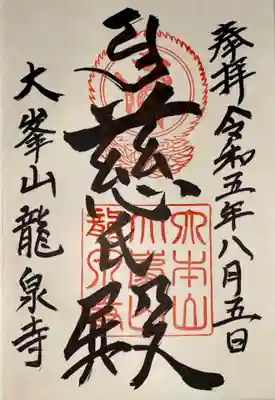 奉拝 令和五年八月五日
慈氏殿
大峯山 龍泉寺
大本山
大峯山
龍泉寺